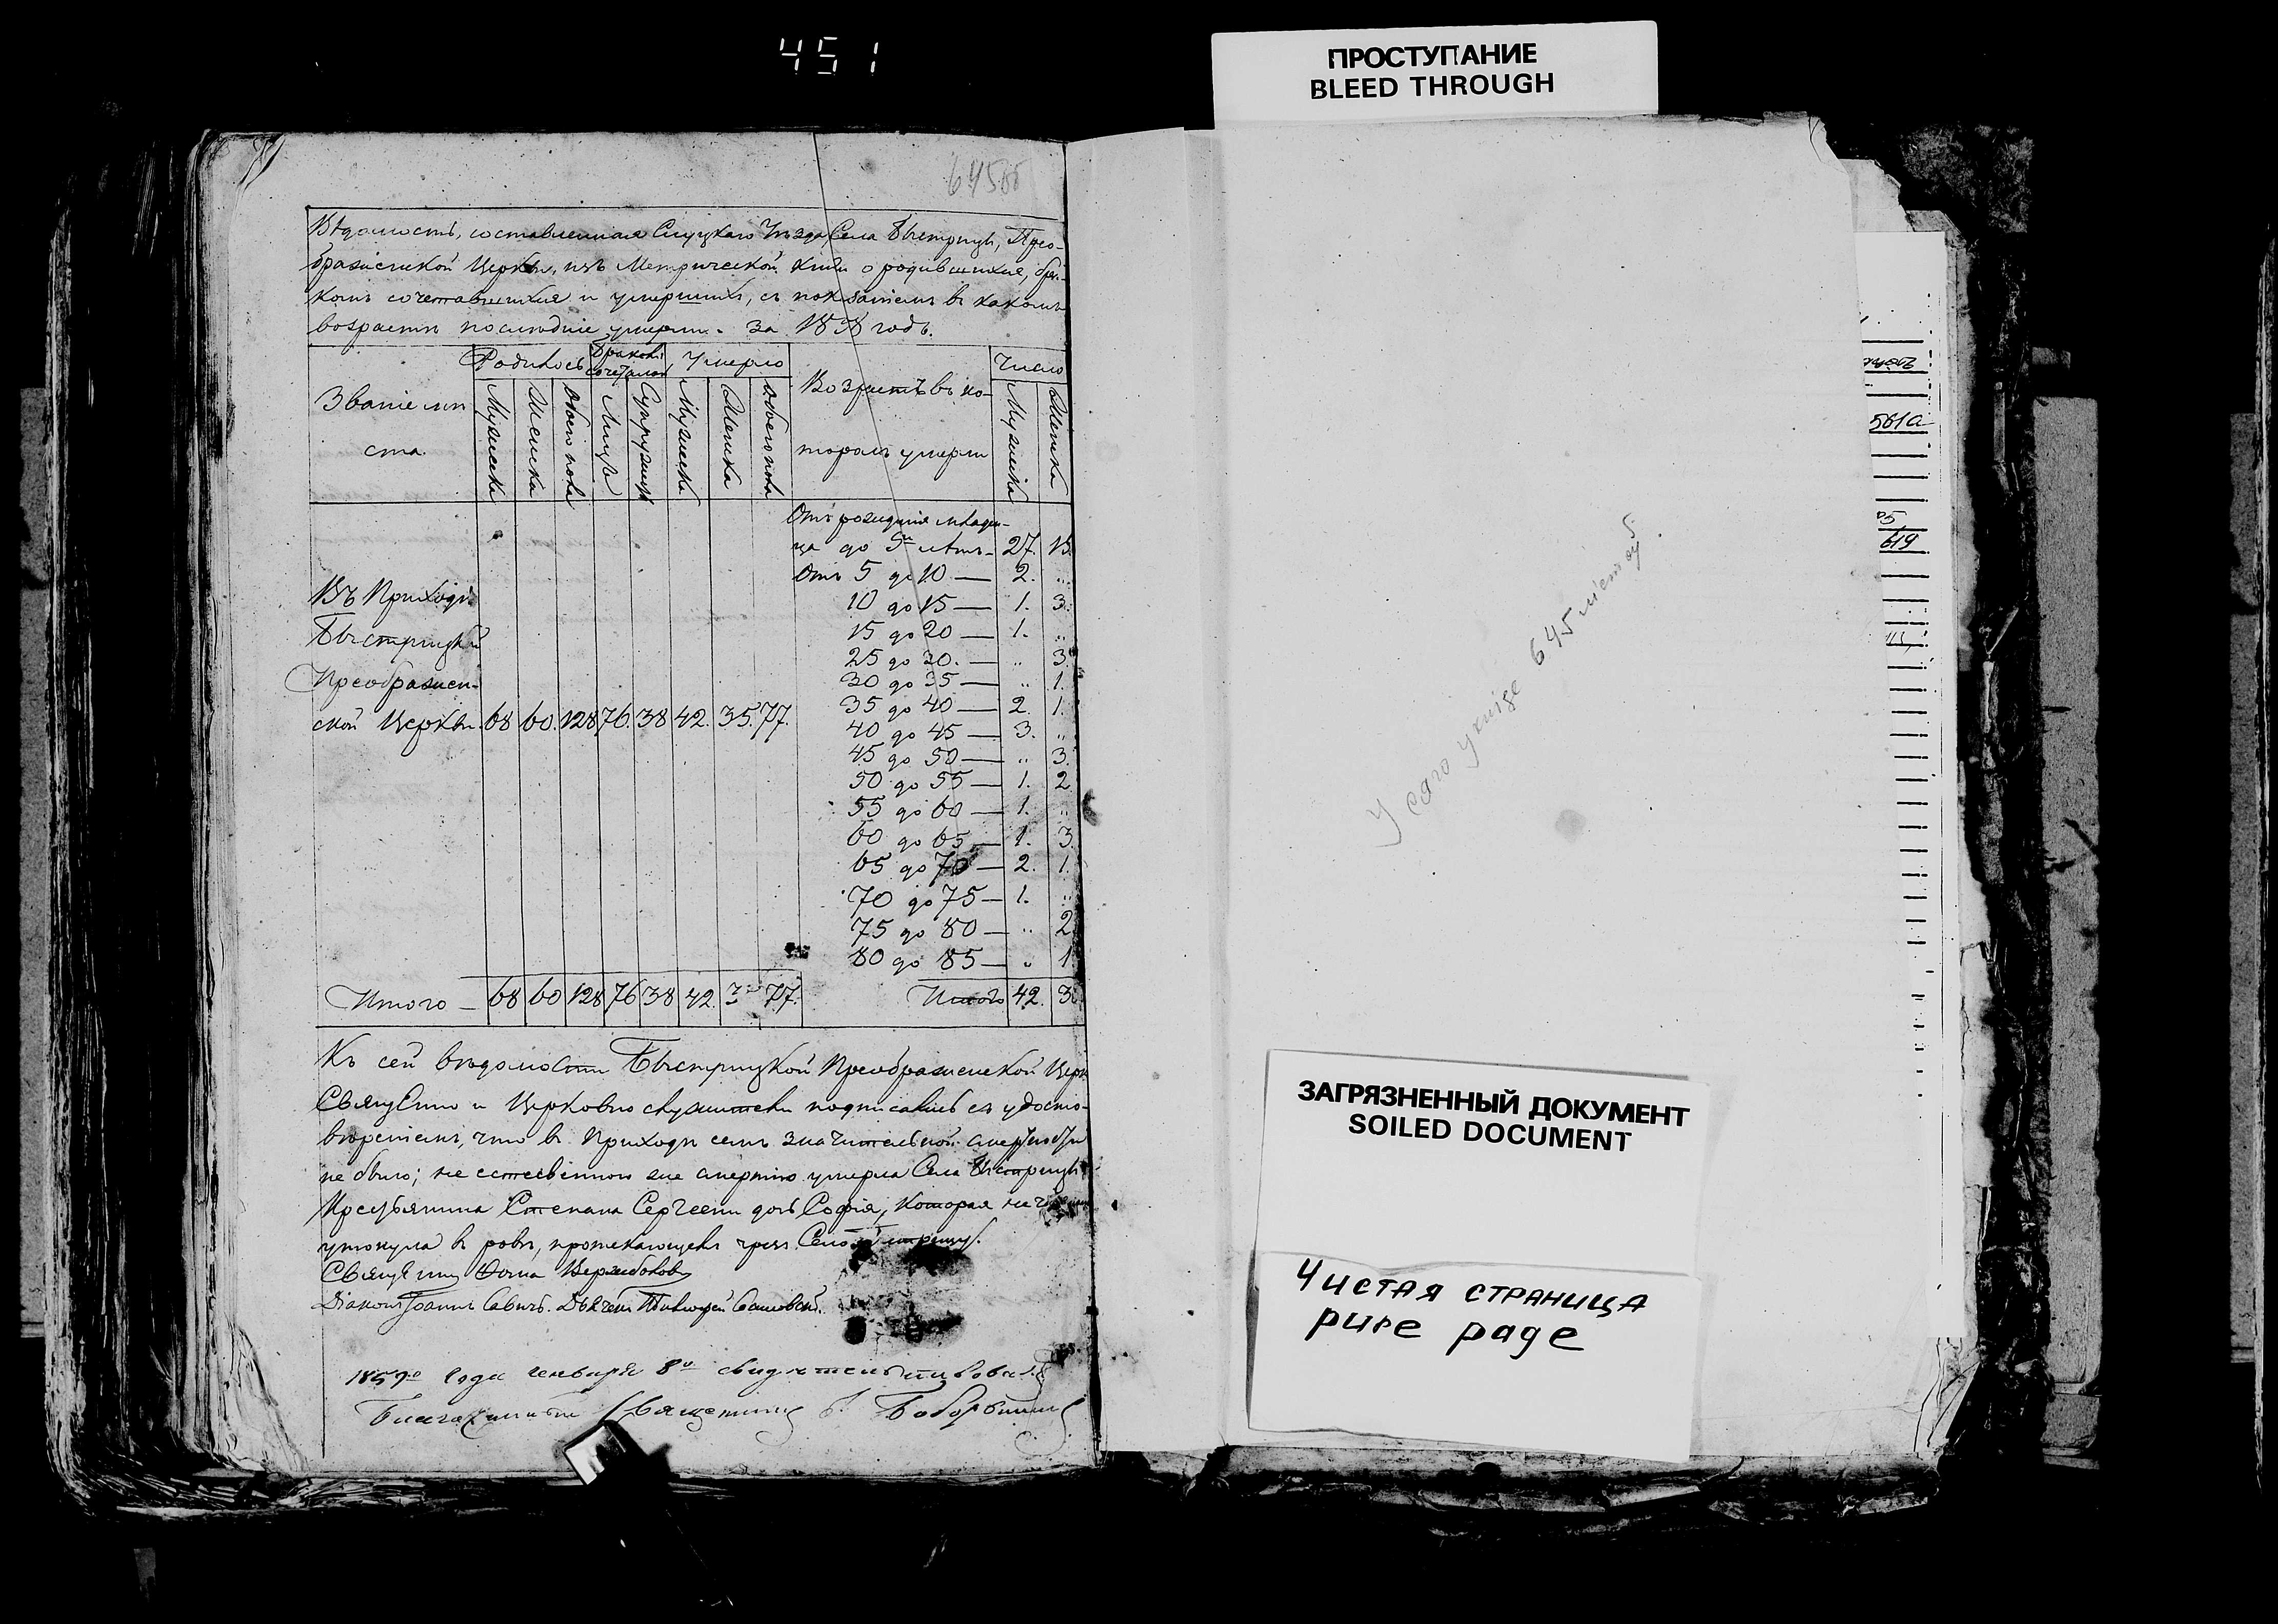 451
ПРОСТУПАНИЕ
BLEED THROUGH
645об
Вѣдомость, составленная Слуцкаго Уѣзда Села Быстрицы, Прео-
браженской Церкви, изъ Метрической книги о родившихся, бра-
комъ сочетавшихся и умершихъ, съ показаніемъ въ какомъ
возрастѣ послѣдніе умерли. за 1858 годъ.
Званіе мѣ
ста.
Родилось
Бракомъ
сочеталось
Умерло
Возрастъ въ ко-
торомъ умерли
Число
Мужеска
Женска
Обоего пола
Лицъ
Супружествъ
Мужеска
Женска
Обоего пола
Мужеска
Женска
Отъ рожденія младен-
ца до 5ти лѣтъ- 27. 15.
Отъ 5 до 10 — 2. „
Въ Приходѣ
10 до 15 — 1. 3.
Быстрицкой
15 до 20 — 1. „
25 до 30. — „ 3.
Преображен-
30 до 35 — „ 1.
35 до 40 — 2. 1.
ской Церкви. 68 60. 128 76. 38 42. 35. 77.
40 до 45 — 3. „
45 до 50 — „ 3.
50 до 55 — 1. 2
55 до 60 — 1. „
60 до 65 — 1. 3
65 до 70 — 2. 1.
70 до 75 — 1. „
75 до 80 — „ 2
80 до 85 — „ 1
Итого — 68 60 128 76 38 42. 77. Итого 42. 3
Къ сей вѣдомости Быстрицкой Преображенской Церк
Священно и Церковнослужители подписались съ удосто-
вѣреніемъ, что въ Приходѣ семъ значительной смертности
не было; не естественною же смертію умерла Села Быстрицы
Крестьянина Степана Сергеени дочь Софія, которая
утонула въ ровѣ, протекающемъ чрезъ Село Быстрицу.
Священникъ Фома
Діаконъ Іоаннъ Савичъ. Дьячекъ
1859го Года Генваря 8го свидѣтельствовалъ
Благочинный Священникъ
У сяго ўкнізе 645 лістоў.
561а
619
ЗАГРЯЗНЕННЫЙ ДОКУМЕНТ
SOILED DOCUMENT
Чистая страница
pure page